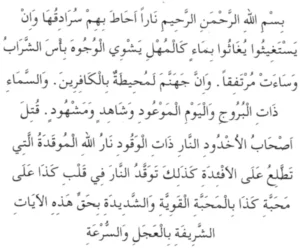 بِسْمِ الله الرَّحْمَنِ الرَّحِيمِ نَاراً اَحَاطَ بِهِمْ سُرَادِقُهَا وَاِنْ
يَسْتَغِيثُوا يُغَاثُوا بِمَاءٍ كَالْمُهْلِ يَشْوِي الْوُجُوهَ بِأْسَ الشَّرَابُ
وَسَاءَتْ مُرْتَفَقاً . وَاِنَّ جَهَنَّمَ لَمُحِيطَةٌ بِالْكَافِرِينَ . وَالسَّمَاءِ
ذَاتِ الْبُرُوجِ وَالْيَوْمِ الْمَوْعُودِ وَشَاهِدٍ وَمَشْهُودٍ . قُتِلَ
اَصْحَابُ الْاُخْدُودِ النَّارِ ذَاتِ الْوَقُودِ نَارُ اللهِ الْمُوقَدَةُ الَّتِي
تَطَّلِعُ عَلَى الْاَفْئِدَةِ كَذَلِكَ تَوَقَّدُ النَّارِ فِي قَلْبِ كَذَا عَلَى
مَحَبَّةِ كَذَا بِالْمَحَبَّةِ الْقَوِيَّةِ وَالشَّدِيدَةِ بِحَقِّ هَذِهِ الْآيَاتِ
الشَّرِيفَةِ بِالْعَجَلِ وَالسُّرْعَةِ